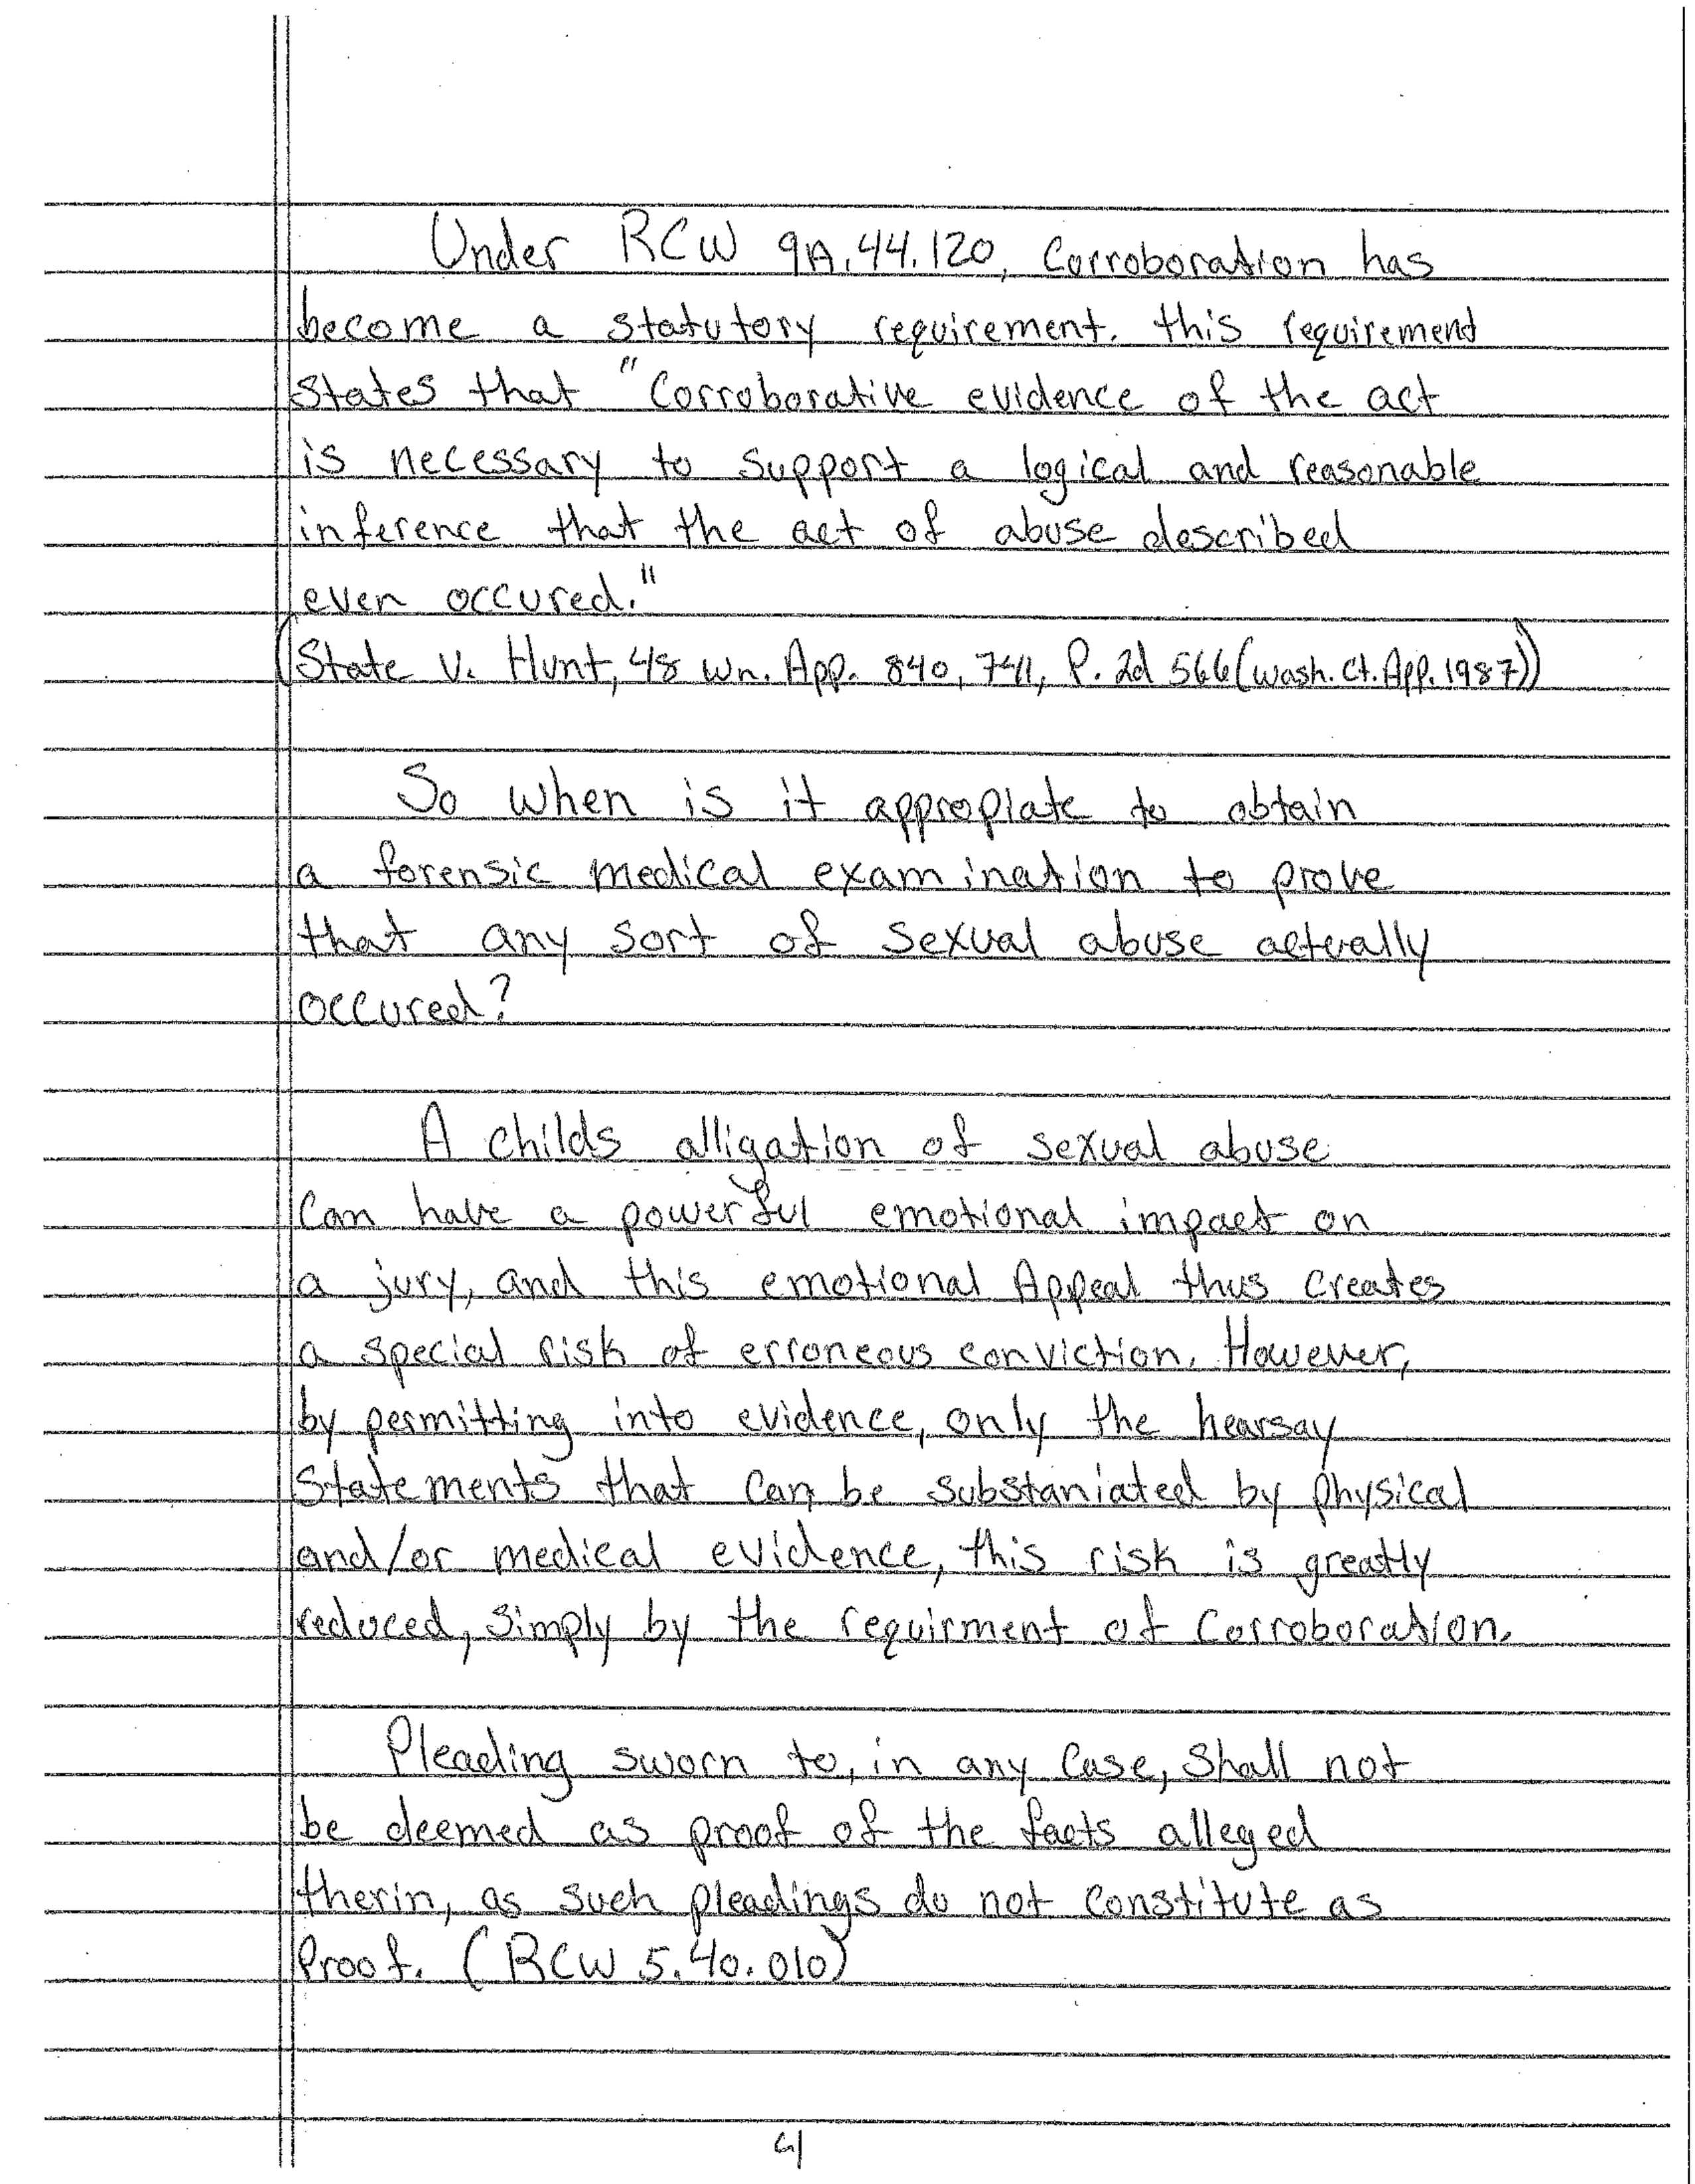 Under RCW 9A.44.120, Corroboration has
become a statutory requirement. this requirement
States that "Corroborative evidence of the act
is necessary to support a logical and reasonable
inference that the act of abuse described
even occured."
(State v. Hunt, 48 Wn. App. 840, 741, P. 2d 566 (Wash. Ct. App. 1987))
So when is it appropiate to obtain
a forensic medical examination to prove
that any sort of sexual abuse actually
occured?
A childs alligation of sexual abuse
Can have a powerful emotional impact on
a jury, and this emotional Appeal thus creates
a special risk of erroneous conviction. However,
by permitting into evidence, only the hearsay
Statements that can be substaniated by physical
and/or medical evidence, this risk is greatly
reduced, simply by the requirment of Corroboration.
Pleading sworn to, in any Case, Shall not
be deemed as proof of the facts alleged
therin, as such pleadings do not constitute as
Proof. (RCW 5.40.010)
4